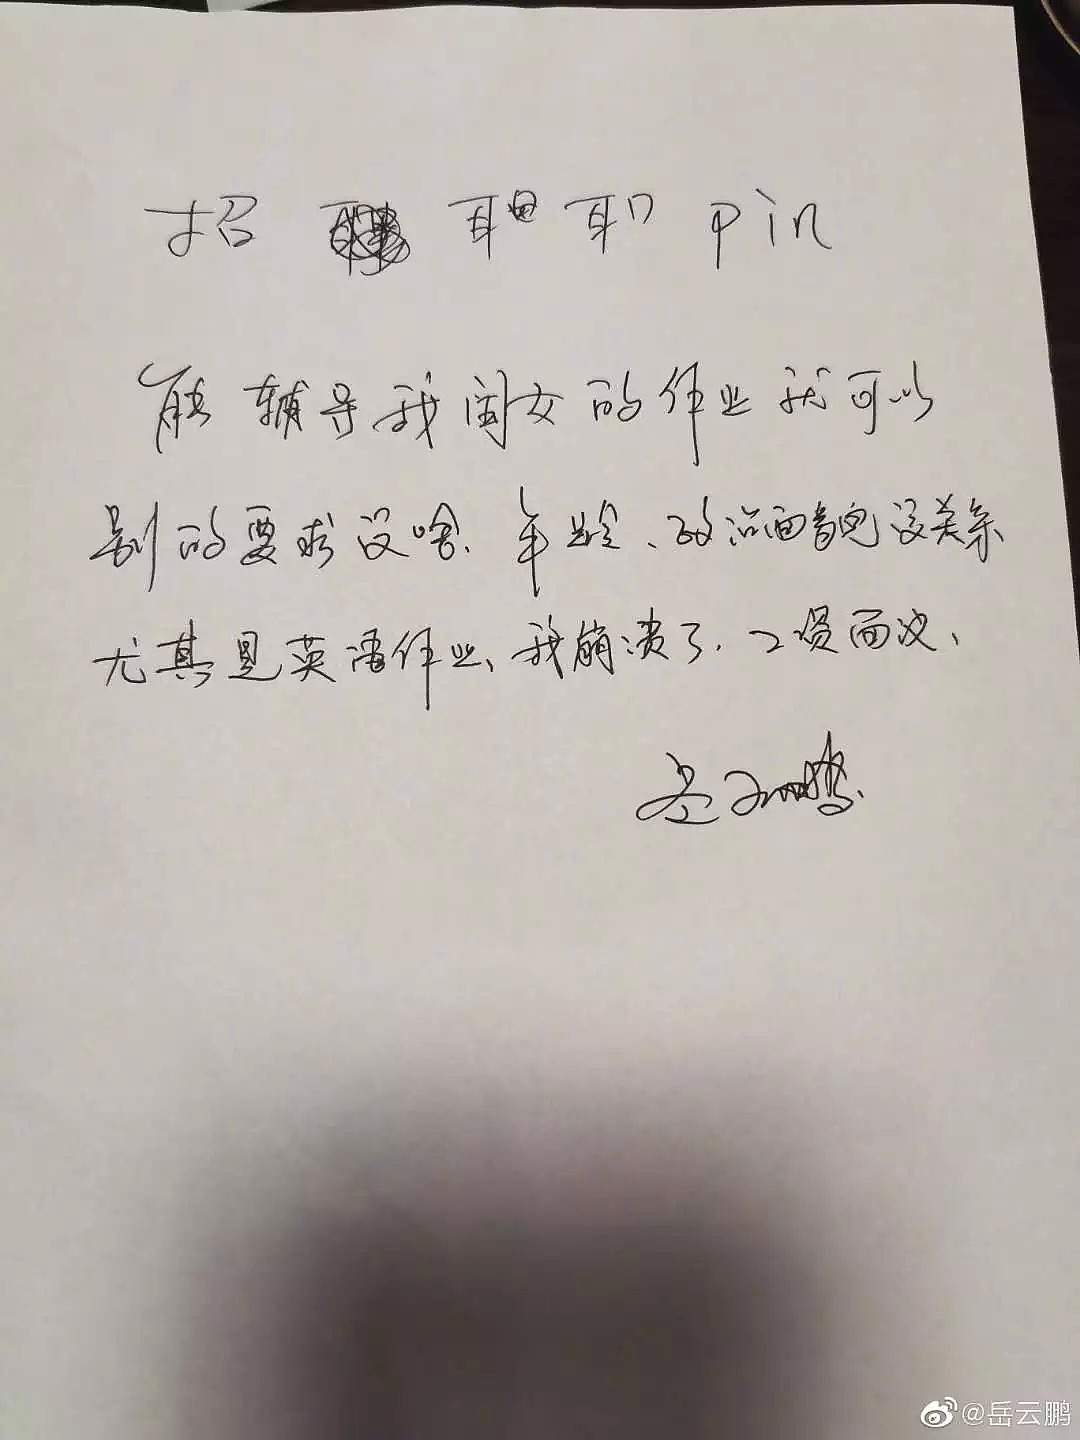 招 pin
能辅导我闺女的作业就可以
别的要求没啥、年龄、政治面貌没关系
尤其是英语作业、我崩溃了.工资面议、
岳云鹏
@岳云鹏